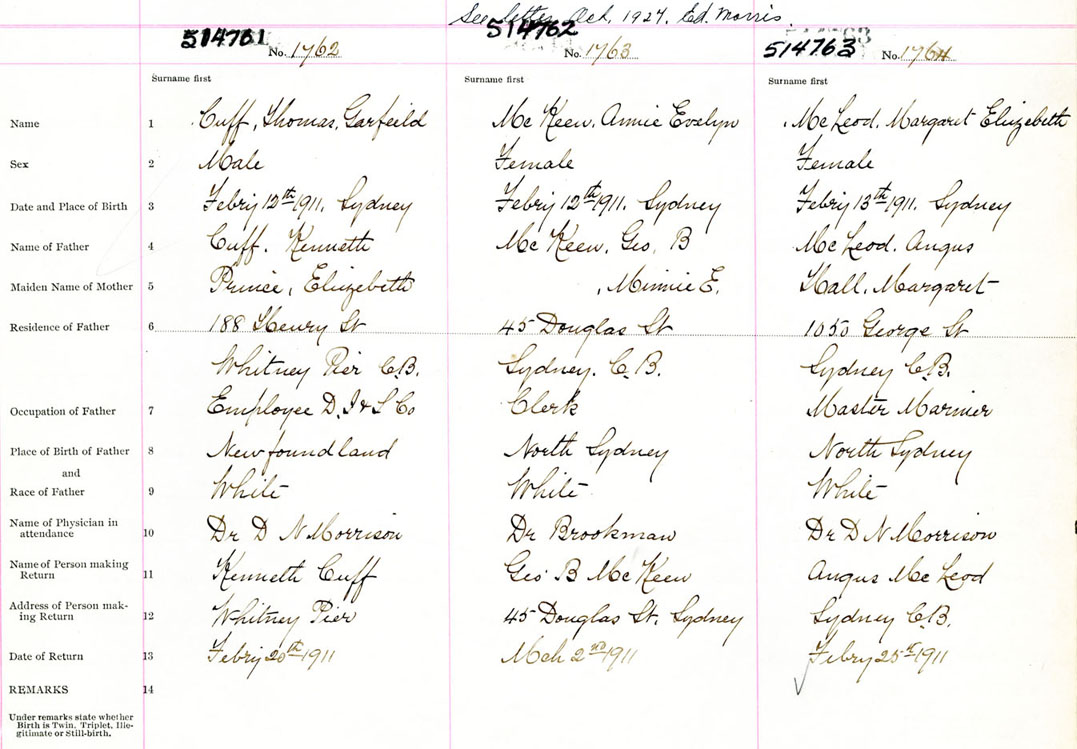 See letter Oct. 1927. Ed. Morris.
514761 No. 1762 514762 No. 1763 514763 No. 1764
Surname first Surname first Surname first
Name 1 Cuff, Thomas, Garfeild Mc Keen. Annie Evelyn Mc Leod. Margaret Elizebeth
Sex 2 Male Female Female
Date and Place of Birth 3 Febry 12th 1911. Sydney Febry 12th 1911. Sydney Febry 13th 1911. Sydney
Name of Father 4 Cuff. Kenneth Mc Keen, Geo. B Mc Leod. Angus
Maiden Name of Mother 5 Prince, Elizebeth , Minnie E. Hall. Margaret
Residence of Father 6 188 Henry St 45 Douglas St 1050 George St
Whitney Pier C.B. Sydney. C.B. Sydney C.B.
Occupation of Father 7 Employee D. I & S Co Clerk Master Mariner
Place of Birth of Father 8 Newfoundland North Sydney North Sydney
and
Race of Father 9 White White White
Name of Physician in
attendance 10 Dr D N Morrison Dr Brookman Dr D N Morrison
Name of Person making
Return 11 Kenneth Cuff Geo B Mc Keen Angus Mc Leod
Address of Person mak-
ing Return 12 Whitney Pier 45 Douglas St. Sydney Sydney C.B.
Date of Return 13 Febry 20th 1911 Mch 2nd 1911 Febry 25th 1911
REMARKS 14
Under remarks state whether
Birth is Twin, Triplet, Ille-
gitimate or Still-birth.